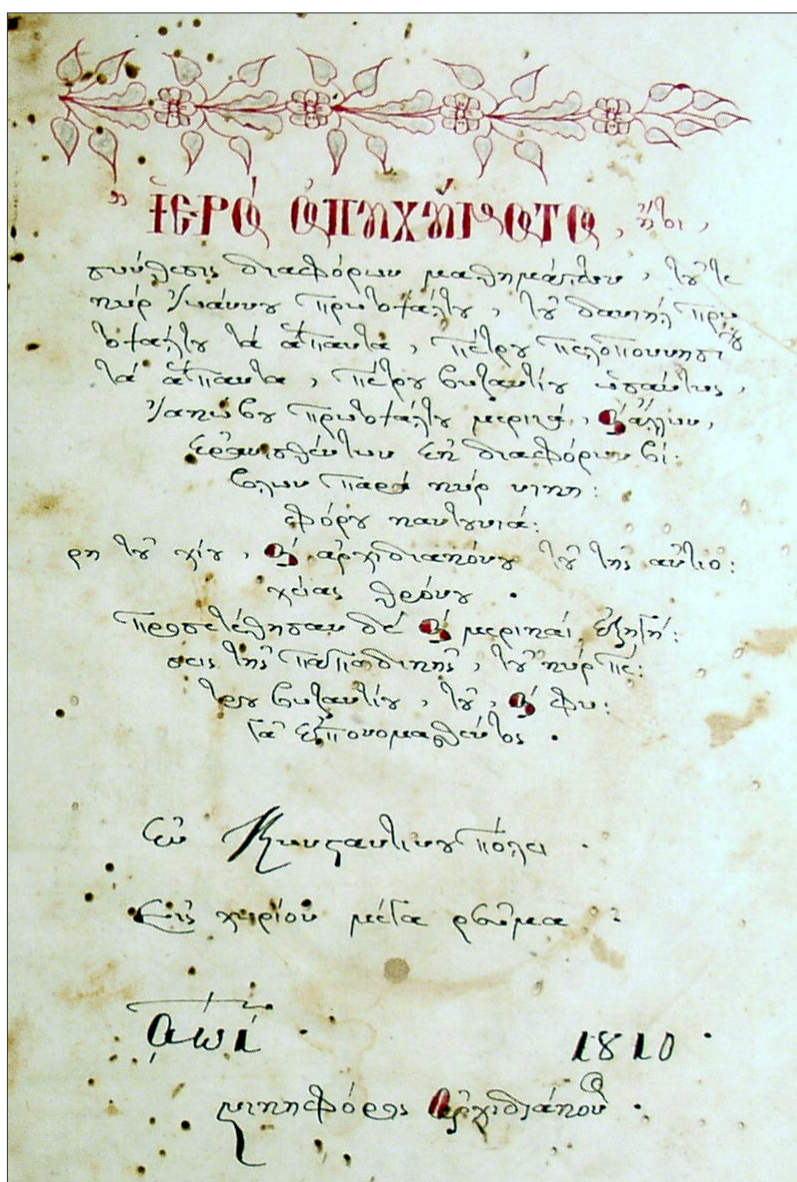 Ἱερὰ ἀπηχήματα, ἤτοι,
σύνθεσις διαφόρων μαθημάτων, τοῦ τε
κὺρ Ἰωάννου πρωτοψάλτου, τοῦ δανιὴλ πρω
τοψάλτου τὰ ἅπαντα, πέτρου πελοποννησίου
τὰ ἅπαντα, πέτρου βυζαντίου ὡσαύτως,
Ἰακώβου πρωτοψάλτου μερικά, καὶ ἄλλων,
ἐρανισθέντων ἐκ διαφόρων βί:
βλων παρὰ κὺρ νικη:
φόρου καντουνιά:
ρη τοῦ χίου, καὶ ἀρχιδιακόνου τοῦ τῆς ἀντιο:
χείας θρόνου .
Προσετέθησαν δὲ καὶ μερικαὶ ἐξηγή:
σεις τῆς παπαδικῆς, τοῦ κὺρ πέ:
τρου βυζαντίου, τοῦ, καὶ φυ:
γᾶ ἐπονομασθέντος .
Ἐν Κωνσταντινουπόλει .
Εἰς χωρίον μέγα ῥεῦμα :
͵αωί . 1810 .
νικηφόρος ἀρχιδιάκονος .